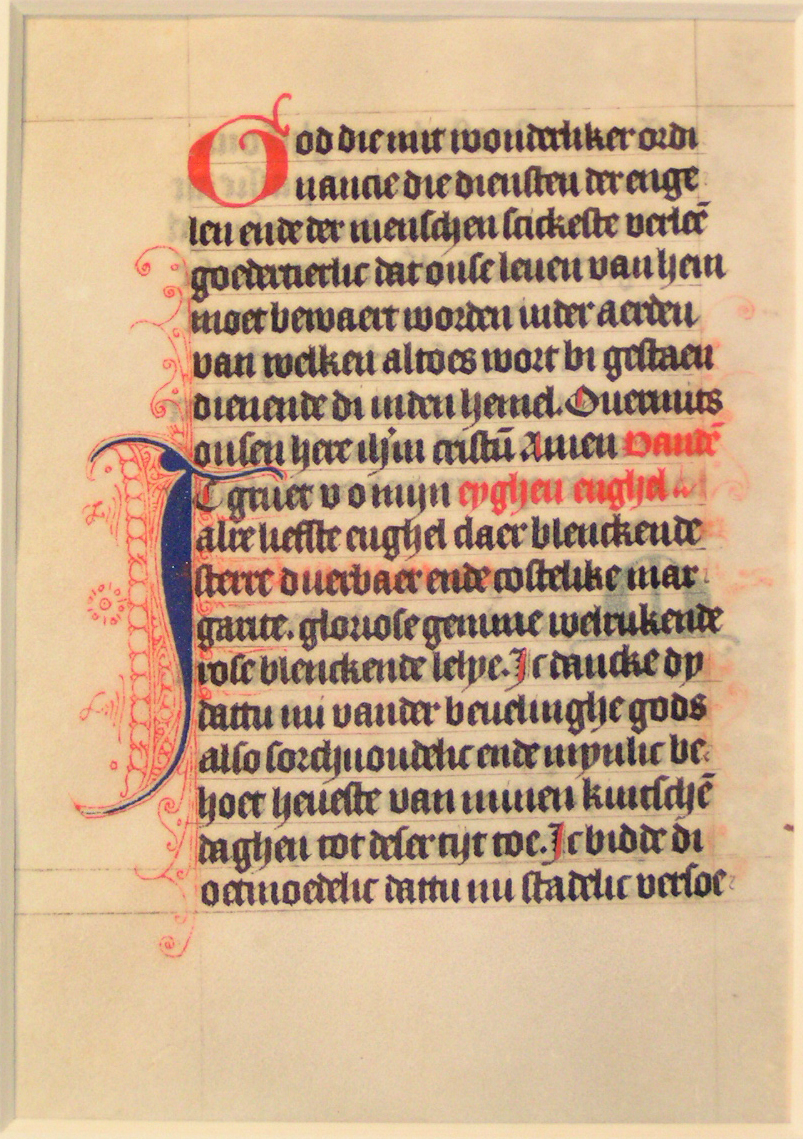 God die mit wonderliker ordi
nancie die diensten der enge
len ende der menschen scickeste verleē
goedertierlic dat onse leuen van hem
moet bewaert worden inder aerden
van welken altoes wort bi gestaen
dienende di inden hemel. Ouermits
onsen here ihm cristū Amen Vandē
IC gruet v o mijn eyghen enghel
alre liefste enghel claer blenckende
sterre duerbaer ende costelike mar
garite. gloriose gemme welrukende
rose blenckende lelye. Ic dancke dy
dattu mi vander beuelinghe gods
also sorchuoudelic ende mynlic be
hoet heueste van minen kintschē
daghen tot deser tijt toe. Ic bidde di
oetmoedelic dattu mi stadelic versoe